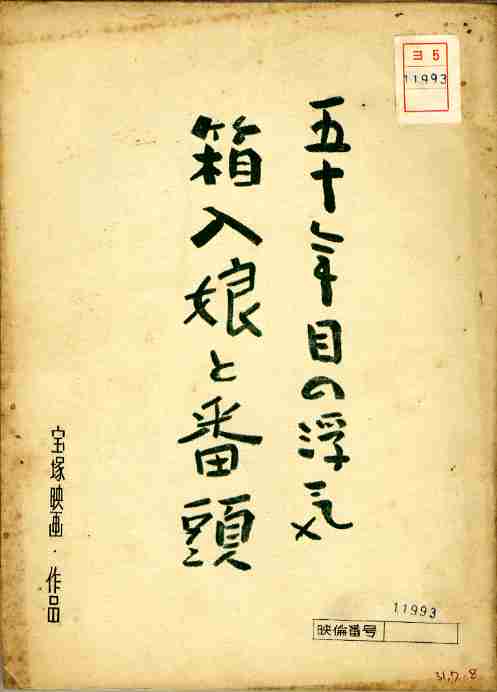 ヨ5
11993
五十年目の浮気
箱入娘と番頭
宝塚映画・作品
11993
映倫番号
31.7.8